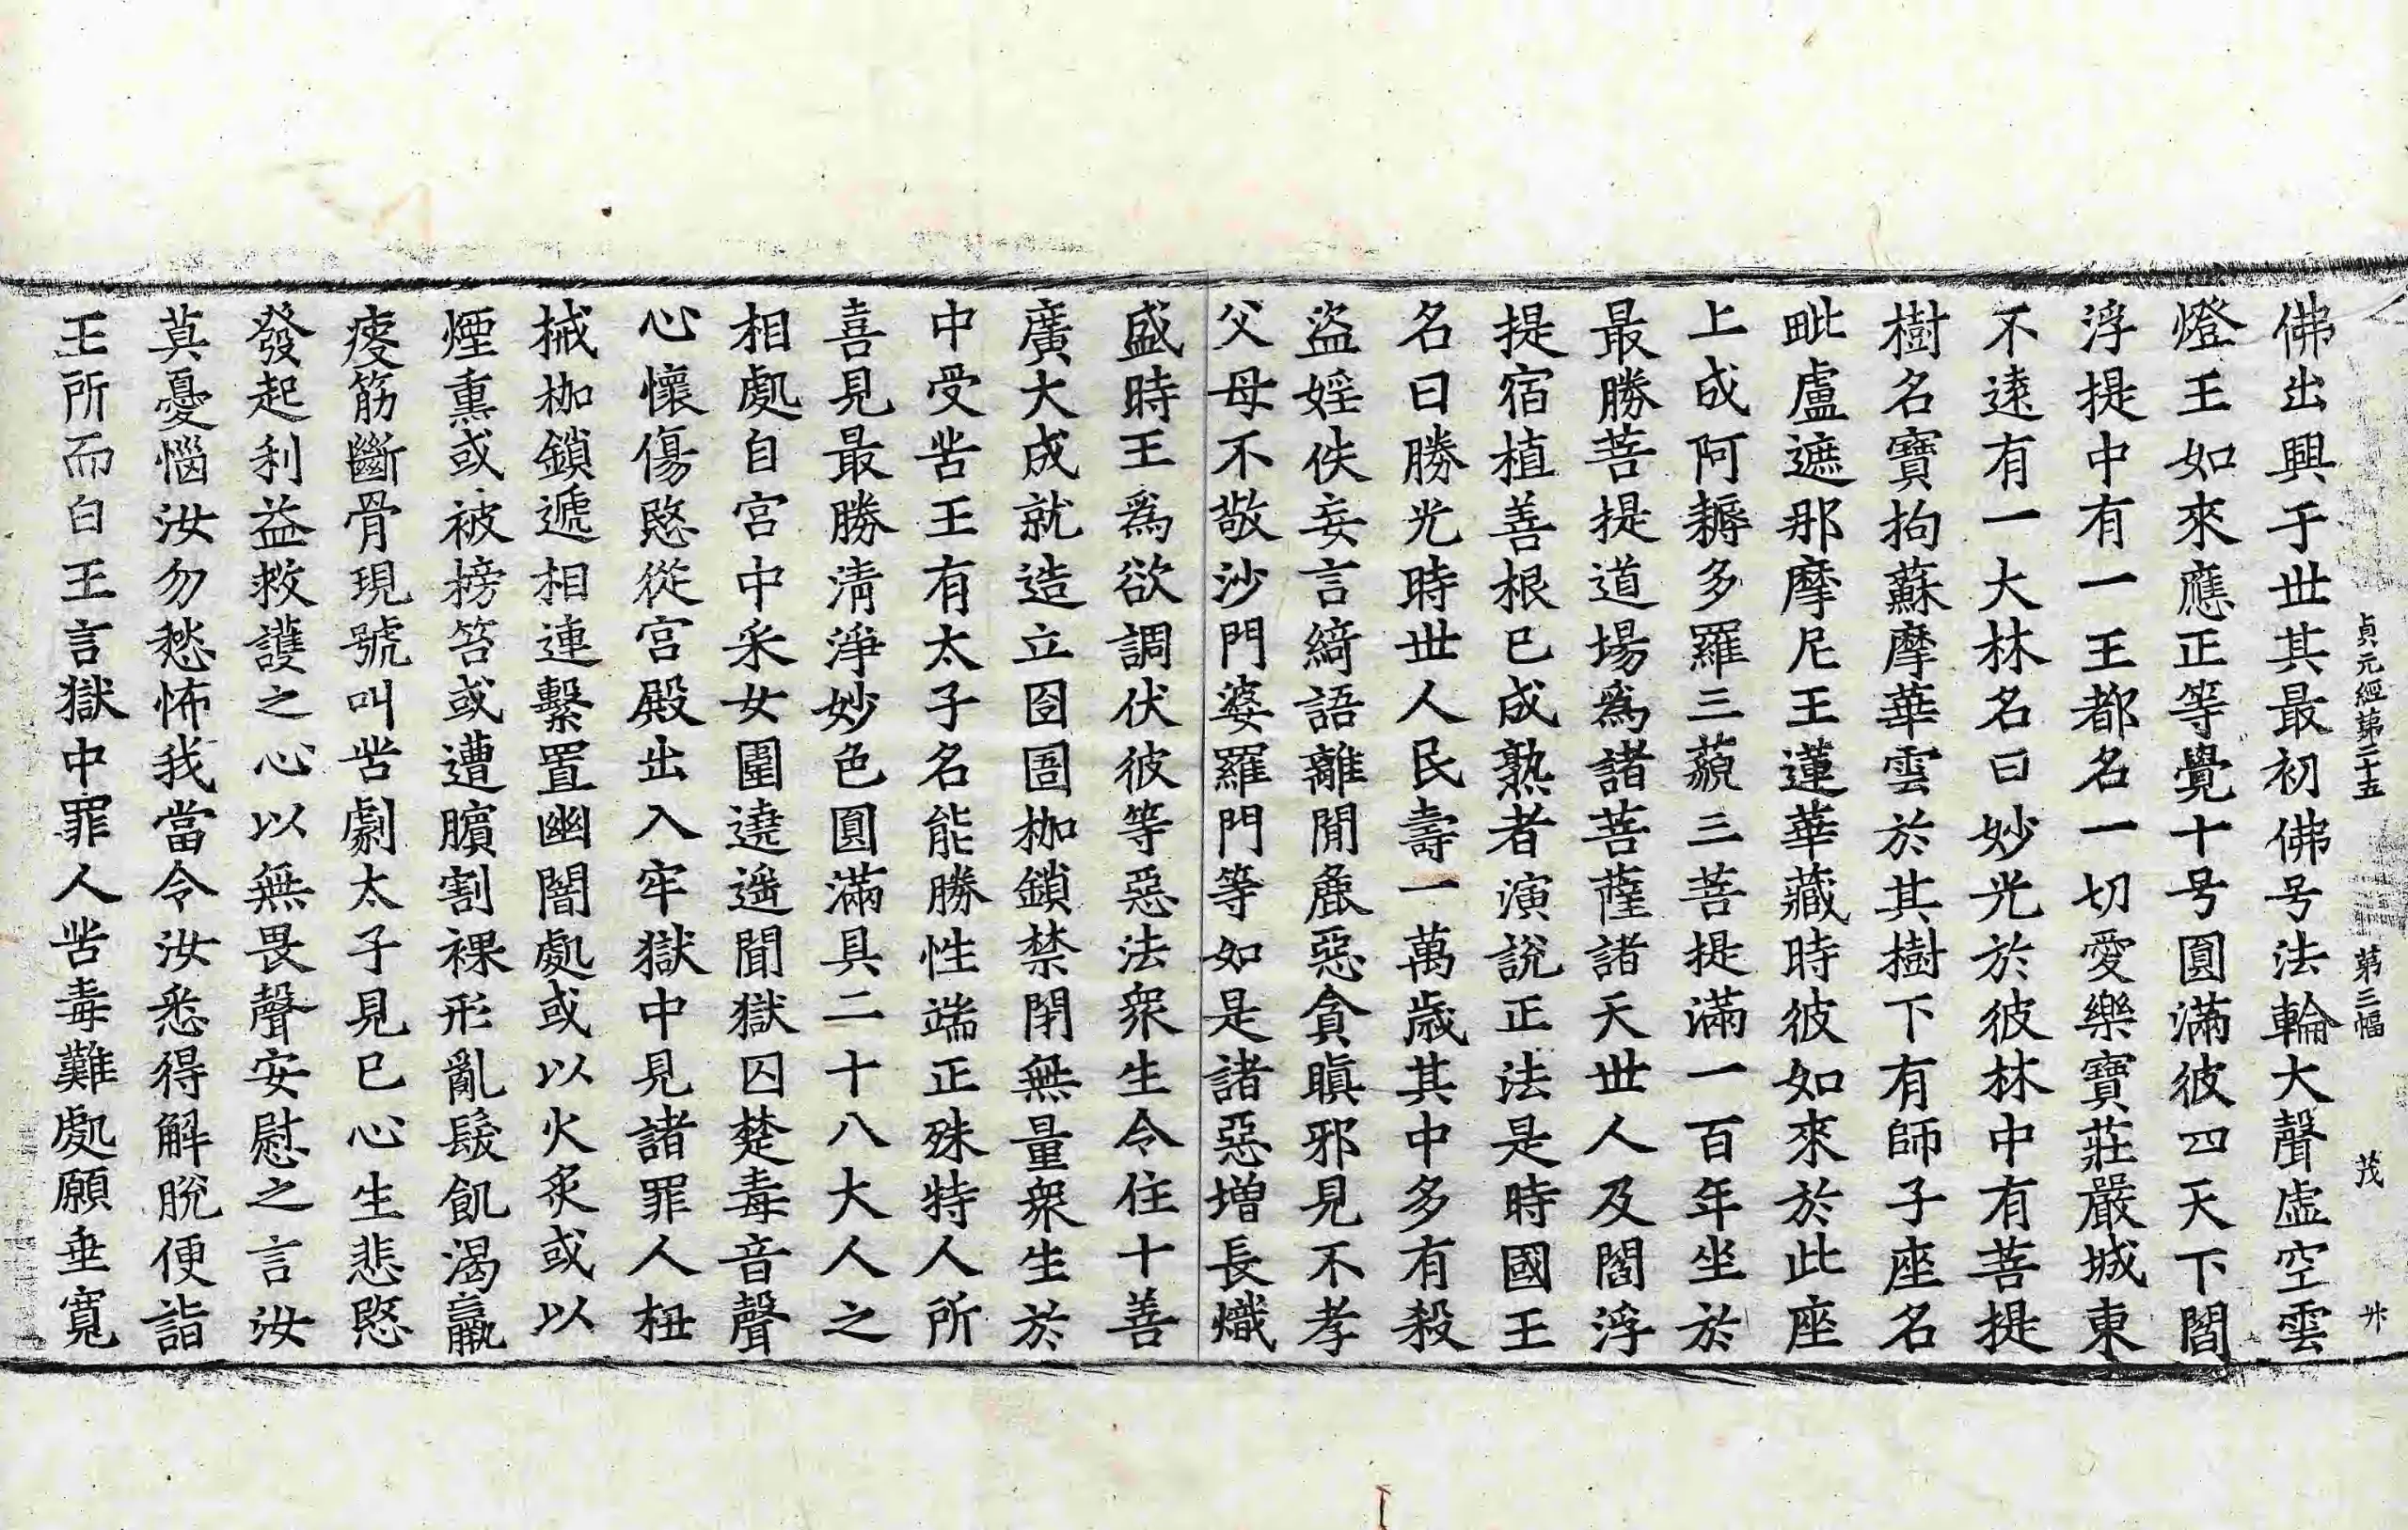 貞元經第二十五 第三幅 茂
佛出興于世其最初佛号法輪大聲虚空雲
燈王如來應正等覺十号圓滿彼四天下閻
浮提中有一王都名一切愛樂寶莊嚴城東
不遠有一大林名曰妙光於彼林中有菩提
樹名寶拘蘇摩華雲於其樹下有師子座名
毗盧遮那摩尼王蓮華藏時彼如來於此座
上成阿耨多羅三藐三菩提滿一百年坐於
最勝菩提道場爲諸菩薩諸天世人及閻浮
提宿植善根已成熟者演說正法是時國王
名曰勝光時世人民壽一萬歲其中多有殺
盜婬佚妄言綺語離間麁惡貪瞋邪見不孝
父母不敬沙門婆羅門等如是諸惡増長熾
盛時王爲欲調伏彼等惡法衆生令住十善
廣大成就造立囹圄枷鎖禁閉無量衆生於
中受苦王有太子名能勝性端正殊特人所
喜見最勝清淨妙色圓滿具二十八大人之
相處自宮中采女圍遶遥聞獄囚楚毒音聲
心懷傷愍從宮殿出入牢獄中見諸罪人杻
械枷鎖遞相連繫置幽闇處或以火炙或以
煙熏或被榜笞或遭臏割裸形亂髮飢渴羸
瘦筋斷骨現號叫苦劇太子見已心生悲愍
發起利益救護之心以無畏聲安慰之言汝
莫憂惱汝勿愁怖我當令汝悉得解脫便詣
王所而白王言獄中罪人苦毒難處願垂寬